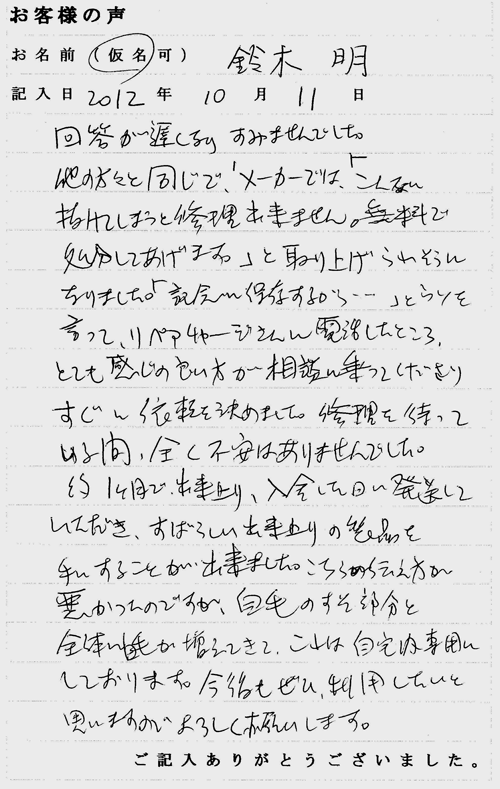 お客様の声
お名前（仮名可） 鈴木 明
記入日 2012 年 10 月 11 日
回答が遅くなり すみませんでした。
他の方々と同じで、メーカーでは、「こんなに
抜けてしまうと修理出来ません。無料で
処分してあげます。」と取り上げられそうに
なりました。「記念に保存するから…」とウソを
言って、リペアチャージさんに電話したところ、
とても感じの良い方が相談に乗ってくださり
すぐに依頼を決めました。修理を待って
いる間、全く不安はありませんでした。
約1ヶ月で出来上り、入金した日に発送して
いただき、すばらしい出来上りの製品を
手にすることが出来ました。こちらの伝え方が
悪かったのですが、自毛のすそ部分と
全体に毛が増えてきて、これは自宅内専用に
しております。今後もぜひ、利用したいと
思いますのでよろしくお願いします。
ご記入ありがとうございました。